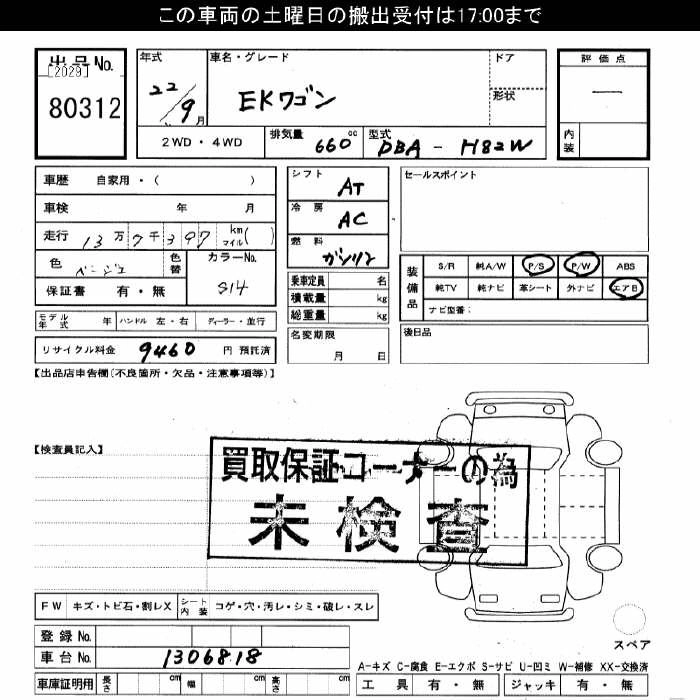 この車両の土曜日の搬出受付は17:00まで
出品No.
[2029]
80312
年式
22/9月
車名・グレード
EKワゴン
ドア
形状
2WD・4WD
排気量 660cc
型式 DBA - H82W
評価点
一
内装
車歴 自家用・( )
車検 年 月
走行 13万7千397 km マイル( )
色 ベージュ 色替
カラーNo. S14
保証書 有・無
シフト AT
冷房 AC
燃料 ガソリン
乗車定員 名
積載量 kg
総重量 kg
セールスポイント
装備品
S/R 純A/W P/S P/W ABS
純TV 純ナビ 革シート 外ナビ エアB
ナビ型番:
モデル年式 年 ハンドル 左・右 ディーラー・並行
名変期限
月 日
後日品
リサイクル料金 9460 円 預託済
【出品店申告欄(不良箇所・欠品・注意事項等)】
【検査員記入】
買取保証コーナーの為
未検査
FW キズ・トビ石・割レX シート内装 コゲ・穴・汚レ・シミ・破レ・スレ
スペア
登録No.
車台No. 1306818
車庫証明用 長さ cm 幅 cm 高さ cm
A-キズ C-腐食 E-エクボ S-サビ U-凹ミ W-補修 XX-交換済
工具 有・無 ジャッキ 有・無